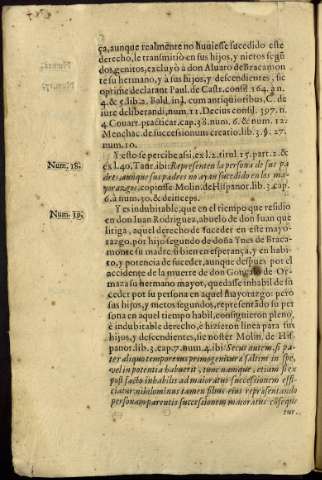 ça, aunque realmente no huuiesse sucedido este
derecho, le transmitiò en sus hijos, y nietos segun
dogenitos, excluyò a don Aluaro de Bracamon
te su hermano, y a sus hijos, y descendientes, sic
optime declarant Paul. de Castr. consil. 164. à n.
4. & 5. lib. 2. Bald. in l. cum antiquioribus, C. de
iure deliberandi, num. 11. Decius consil. 397. n.
4. Couarr. practicar. cap. 38. num. 6. & num. 12.
Menchac. de successionum creatio. lib. 3. §. 27.
num. 10.
Num. 18.
Y esto se percibe assi, ex l. 2. titul. 15. part. 2. &
ex l. 40. Taur. ibi: Representen la persona de sus pa
dres, aunque sus padres no ayan sucedido en los ma
yorazgos, copiosse Molin. de Hispanor. lib. 3. cap.
6. à num. 30. & deinceps.
Num. 19.
Y es indubitable, que en el tiempo que residio
en don Iuan Rodriguez, abuelo de don Iuan que
litiga, aquel derecho de suceder en este mayo-
razgo, por hijo segundo de doña Ynes de Braca-
monte su madre, ù bien en esperança, y en habi-
to, y potencia de suceder, aunque despues por el
accidente de la muerte de don Gonçalo de Or-
maza su hermano mayor, quedasse inhabil de su
ceder por su persona en aquel mayorazgo: pero
sus hijos, y nietos segundos, representado su per
sona en aquel tiempo habil, consiguieron pleno,
è indubitable derecho, è hizieron linea para sus
hijos, y descendientes, sic noster Molin. de His
panor. lib. 3. cap. 7. num. 4. ibi: Secus autem, si pa
ter aliquo tempore ius primogenituræ saltim in spe,
vel in potentia habuerit, tunc namque, etiam si ex
post facto inhabilis ad maioratus successionem effi
ciatur, nihilominus tamen filius eius repræsentando
personam parentis successionem maioratus conseque
tur.